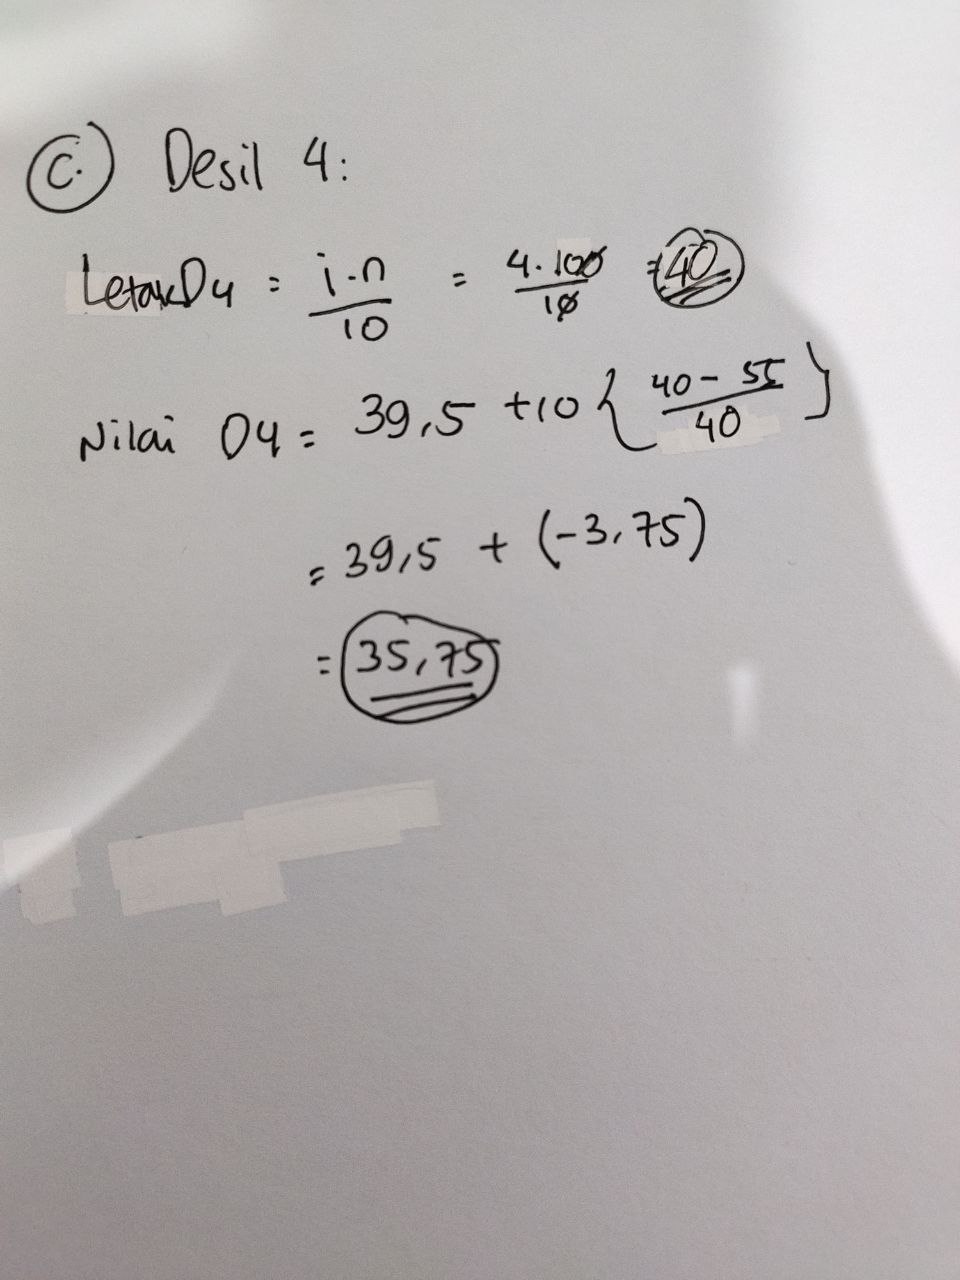 C. Desil 4:
Letak D4 = i.n/10 = 4.100/10 = 40
Nilai D4 = 39,5 + 10 { 40 - 55 / 40 }
= 39,5 + (-3,75)
= 35,75